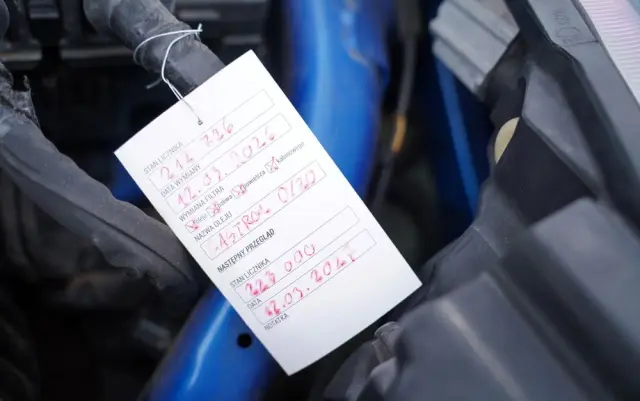 STAN LICZNIKA
212 226
DATA WYMIANY
12.03.2026
WYMIANA FILTRA
oleju paliwa powietrza kabinowego
NAZWA OLEJU
0/20
NASTĘPNY PRZEGLĄD
STAN LICZNIKA
223 000
DATA
12.03.2027
NOTATKA